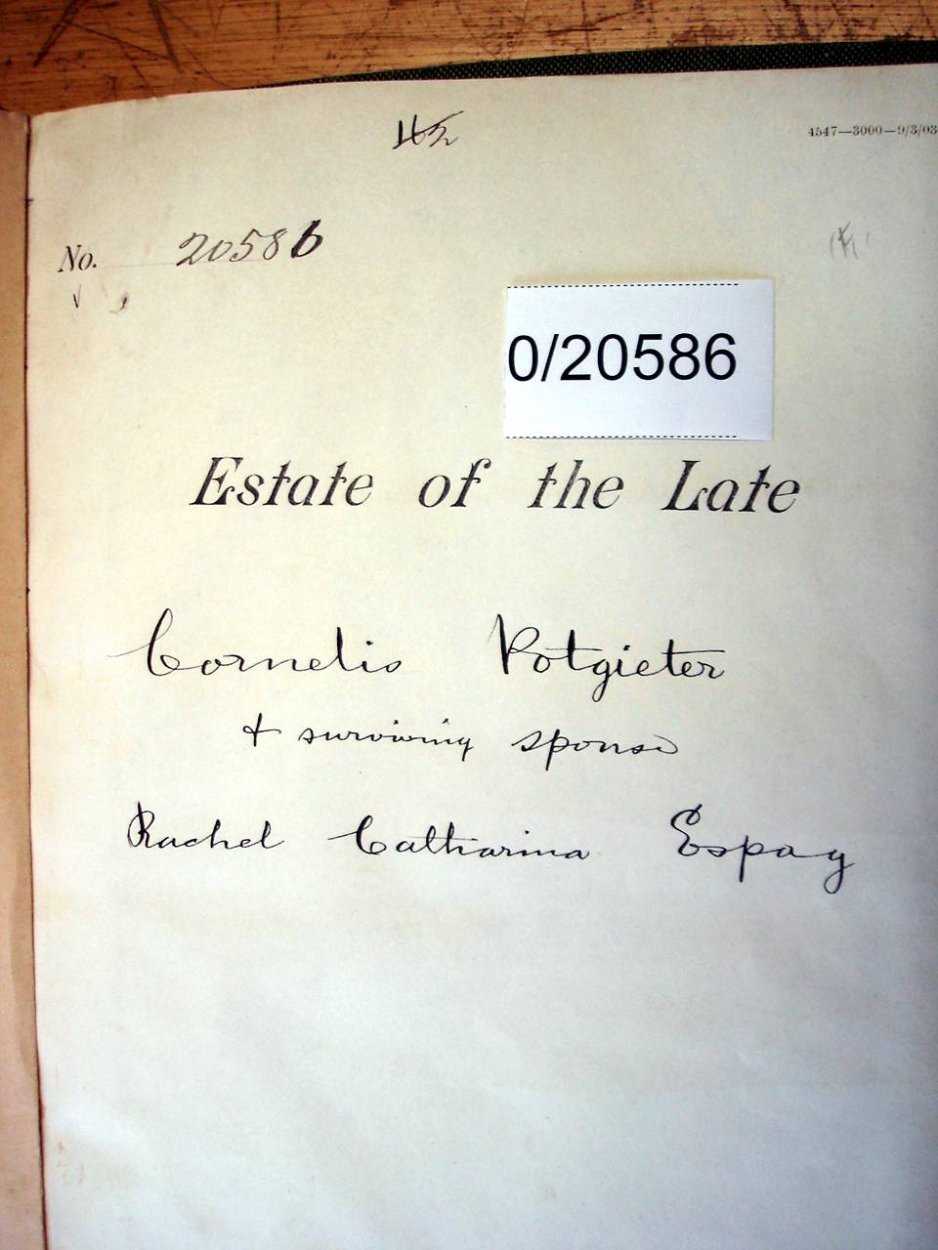 4547—3000—9/3/03
No. 20586
0/20586
Estate of the Late
Cornelis Potgieter
& surviving spouse
Rachel Catharina Espag